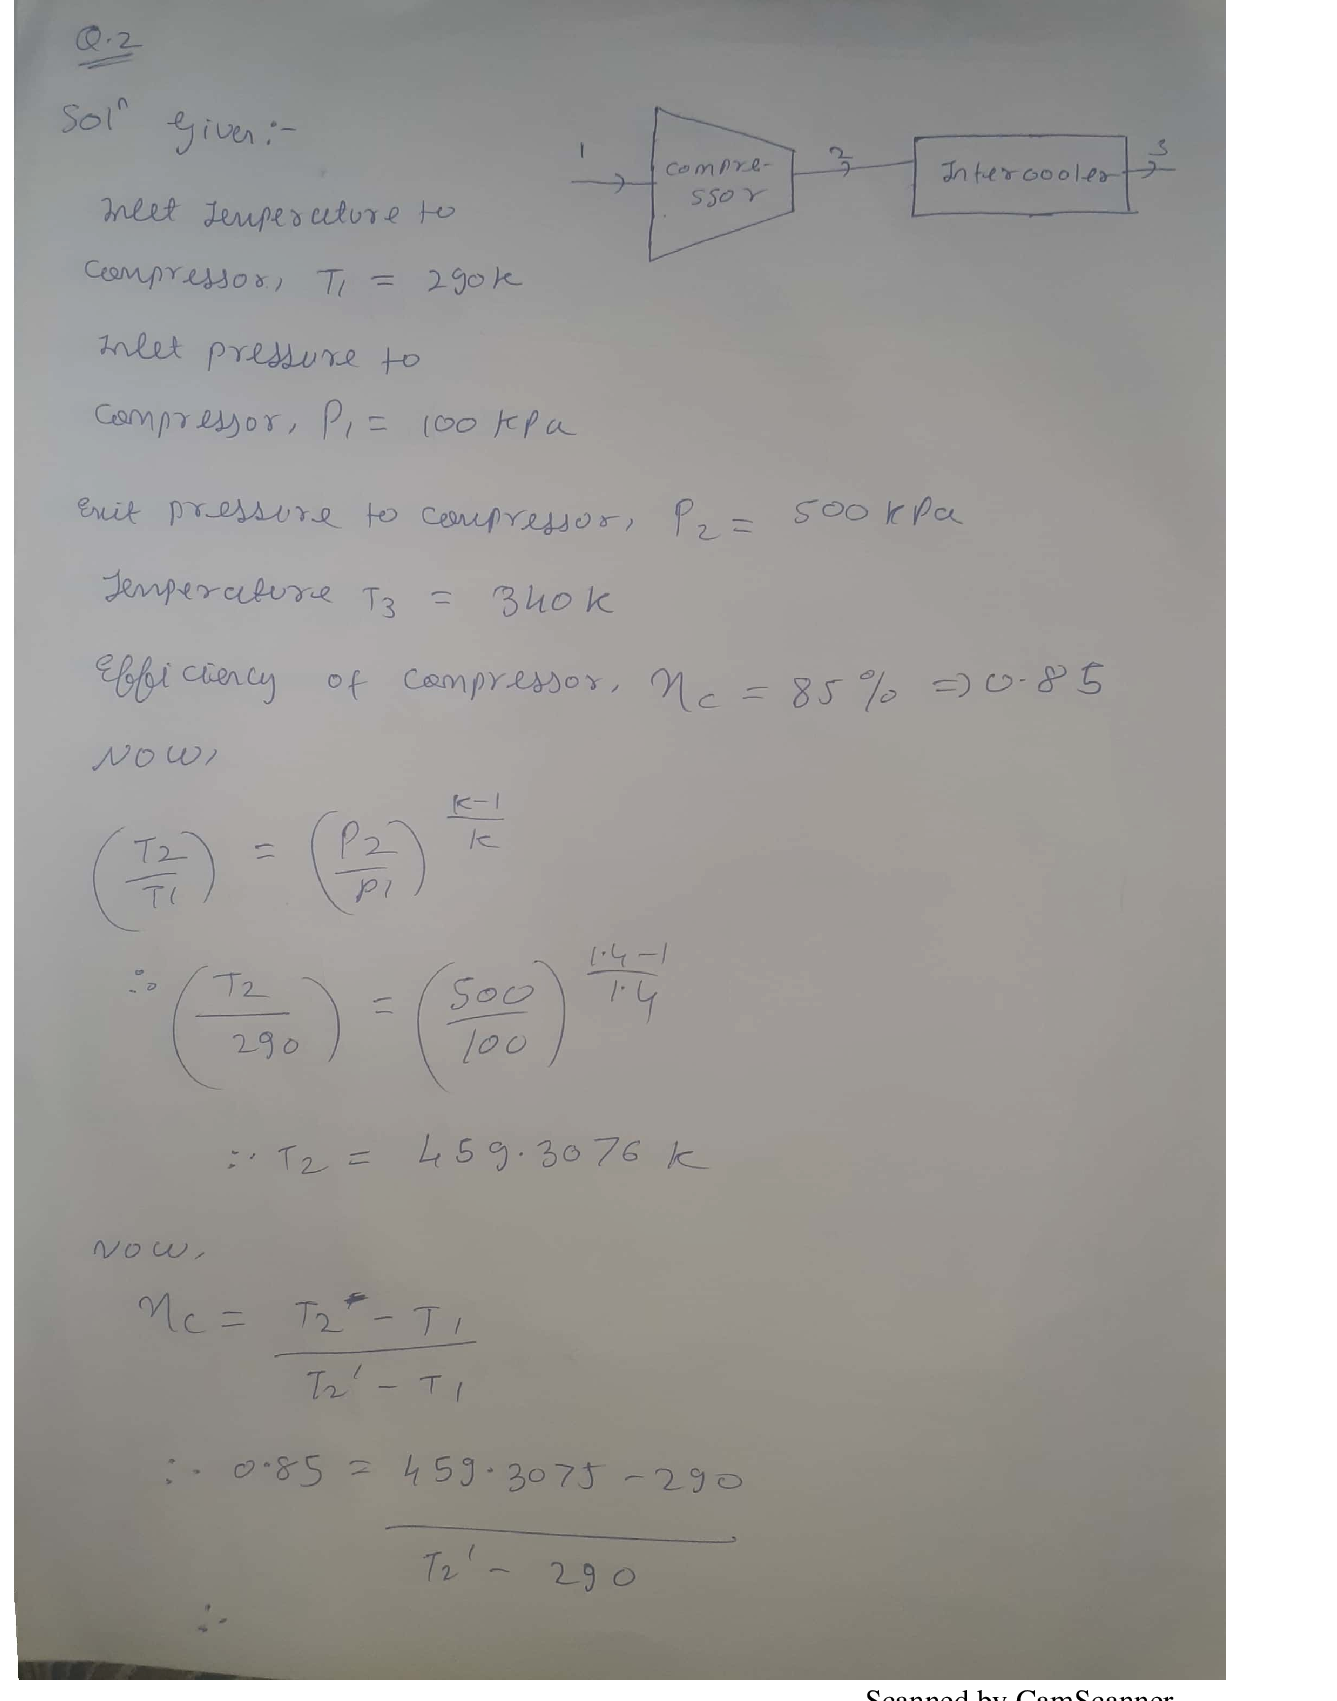 Q.2
Solⁿ Given:-
1
compre-
ssor
2
Intercooler
3
Inlet Temperature to
Compressor, T1 = 290k
Inlet pressure to
Compressor, P1 = 100 kPa
Exit pressure to compressor, P2 = 500 kPa
Temperature T3 = 340k
Efficiency of compressor, ηc = 85% => 0.85
NOW,
(T2/T1) = (P2/P1)^(k-1/k)
∴ (T2/290) = (500/100)^(1.4-1/1.4)
∴ T2 = 459.3076 k
NOW,
ηc = T2 - T1
T2' - T1
∴ 0.85 = 459.3075 - 290
T2' - 290
∴
Scanned by CamScanner